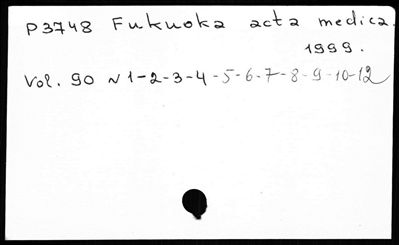 P3748 Fukuoka acta medica.
1999.
Vol. 90 N 1-2-3-4-5-6-7-8-9-10-12